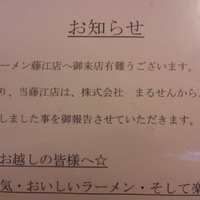 お知らせ
ーメン藤江店へ御来店有難うございます。
り、当藤江店は、株式会社　まるせんから、
しました事を御報告させていただきます。
お越しの皆様へ☆
気・おいしいラーメン・そして楽